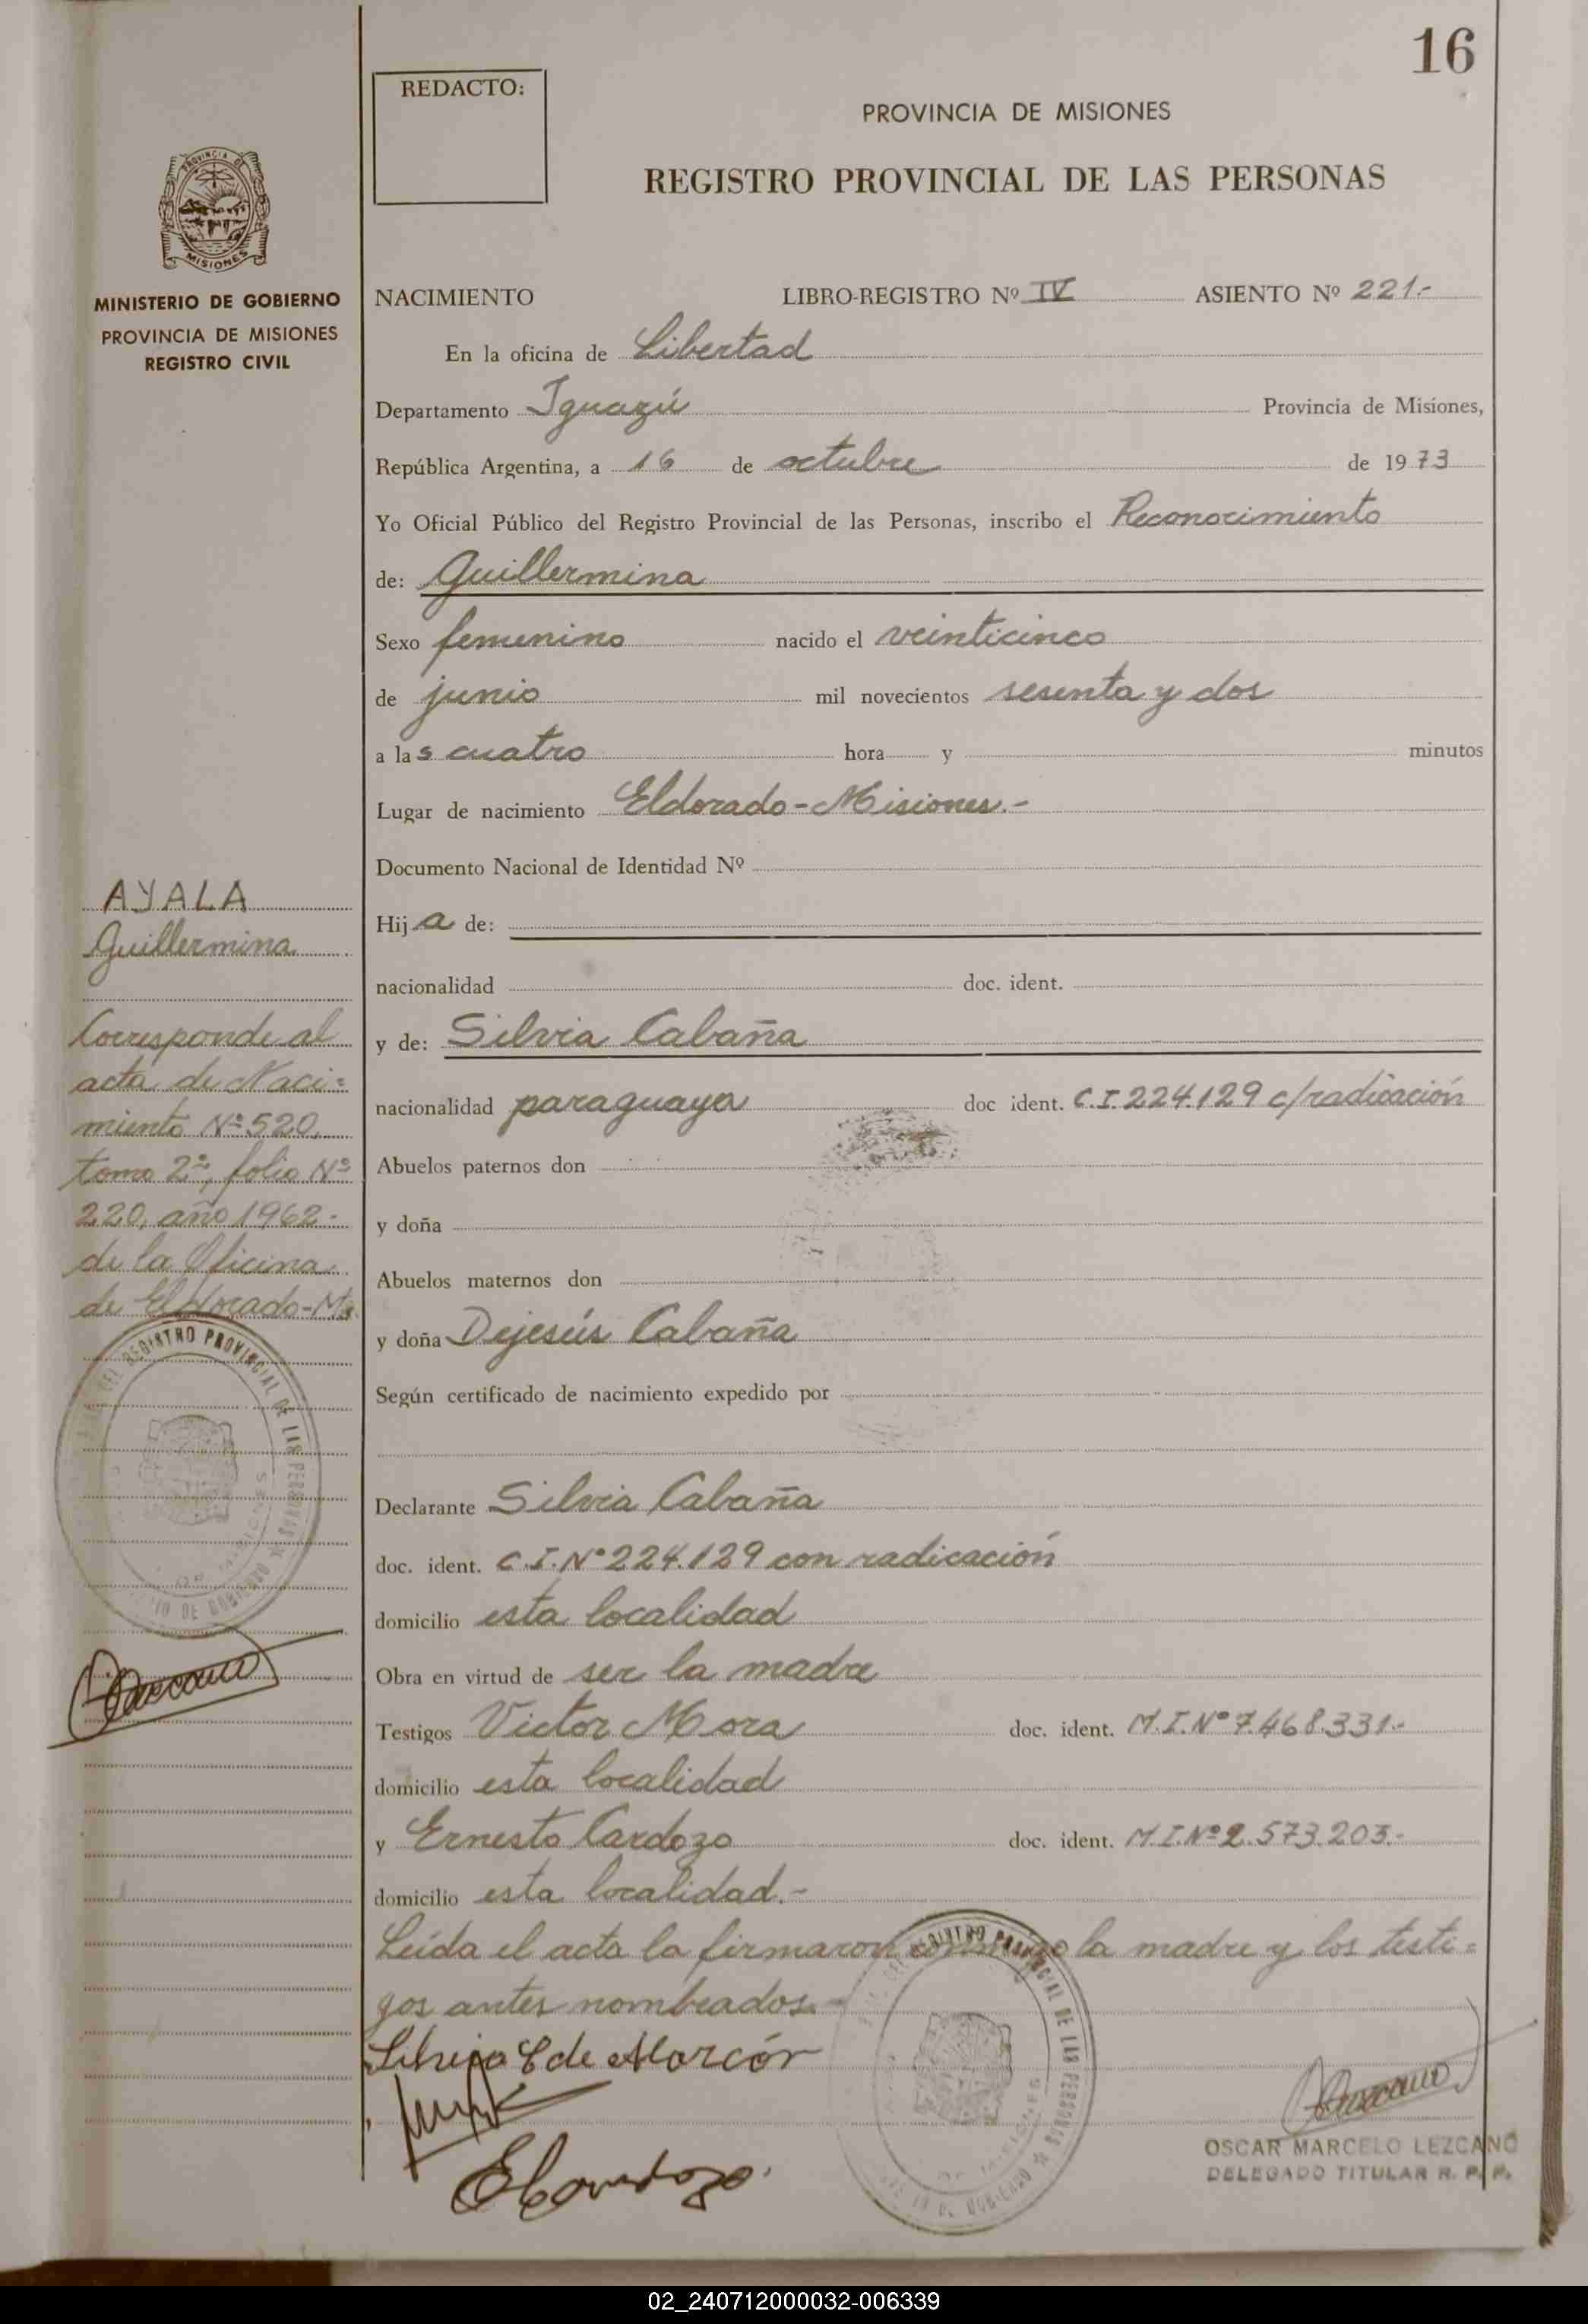 16
REDACTO:
PROVINCIA DE MISIONES
REGISTRO PROVINCIAL DE LAS PERSONAS
PROVINCIA DE
MISIONES
MINISTERIO DE GOBIERNO
PROVINCIA DE MISIONES
REGISTRO CIVIL
NACIMIENTO LIBRO-REGISTRO Nº IV ASIENTO Nº 221.-
En la oficina de Libertad
Departamento Iguazú Provincia de Misiones,
República Argentina, a 16 de octubre de 1973
Yo Oficial Público del Registro Provincial de las Personas, inscribo el Reconocimiento
de: Guillermina
Sexo femenino nacido el veinticinco
de junio mil novecientos sesenta y dos
a las cuatro hora y minutos
Lugar de nacimiento Eldorado-Misiones.-
Documento Nacional de Identidad Nº
Hija de:
nacionalidad doc. ident.
y de: Silvia Cabaña
nacionalidad paraguaya doc ident. C.I. 224.129 c/radicación
Abuelos paternos don
y doña
Abuelos maternos don
y doña Dejesús Cabaña
Según certificado de nacimiento expedido por
Declarante Silvia Cabaña
doc. ident. C.I. Nº 224.129 con radicación
domicilio esta localidad
Obra en virtud de ser la madre
Testigos Victor Mora doc. ident. M.I. Nº 7.468.331.-
domicilio esta localidad
y Ernesto Cardozo doc. ident. M.I. Nº 2.573.203.-
domicilio esta localidad.-
Leída el acta la firmaron conmigo la madre y los testi=
gos antes nombrados.-
AYALA
Guillermina
Corresponde al
acta de Naci=
miento Nº 520,
tomo 2º, folio Nº
220, año 1962.-
de la Oficina
de Eldorado-Ms.
REGISTRO PROVINCIAL DE LAS PERSONAS
Silvia C de Alarcón
ECardozo
REGISTRO PROVINCIAL DE LAS PERSONAS
OSCAR MARCELO LEZCANO
DELEGADO TITULAR R. P. P.
02_240712000032-006339